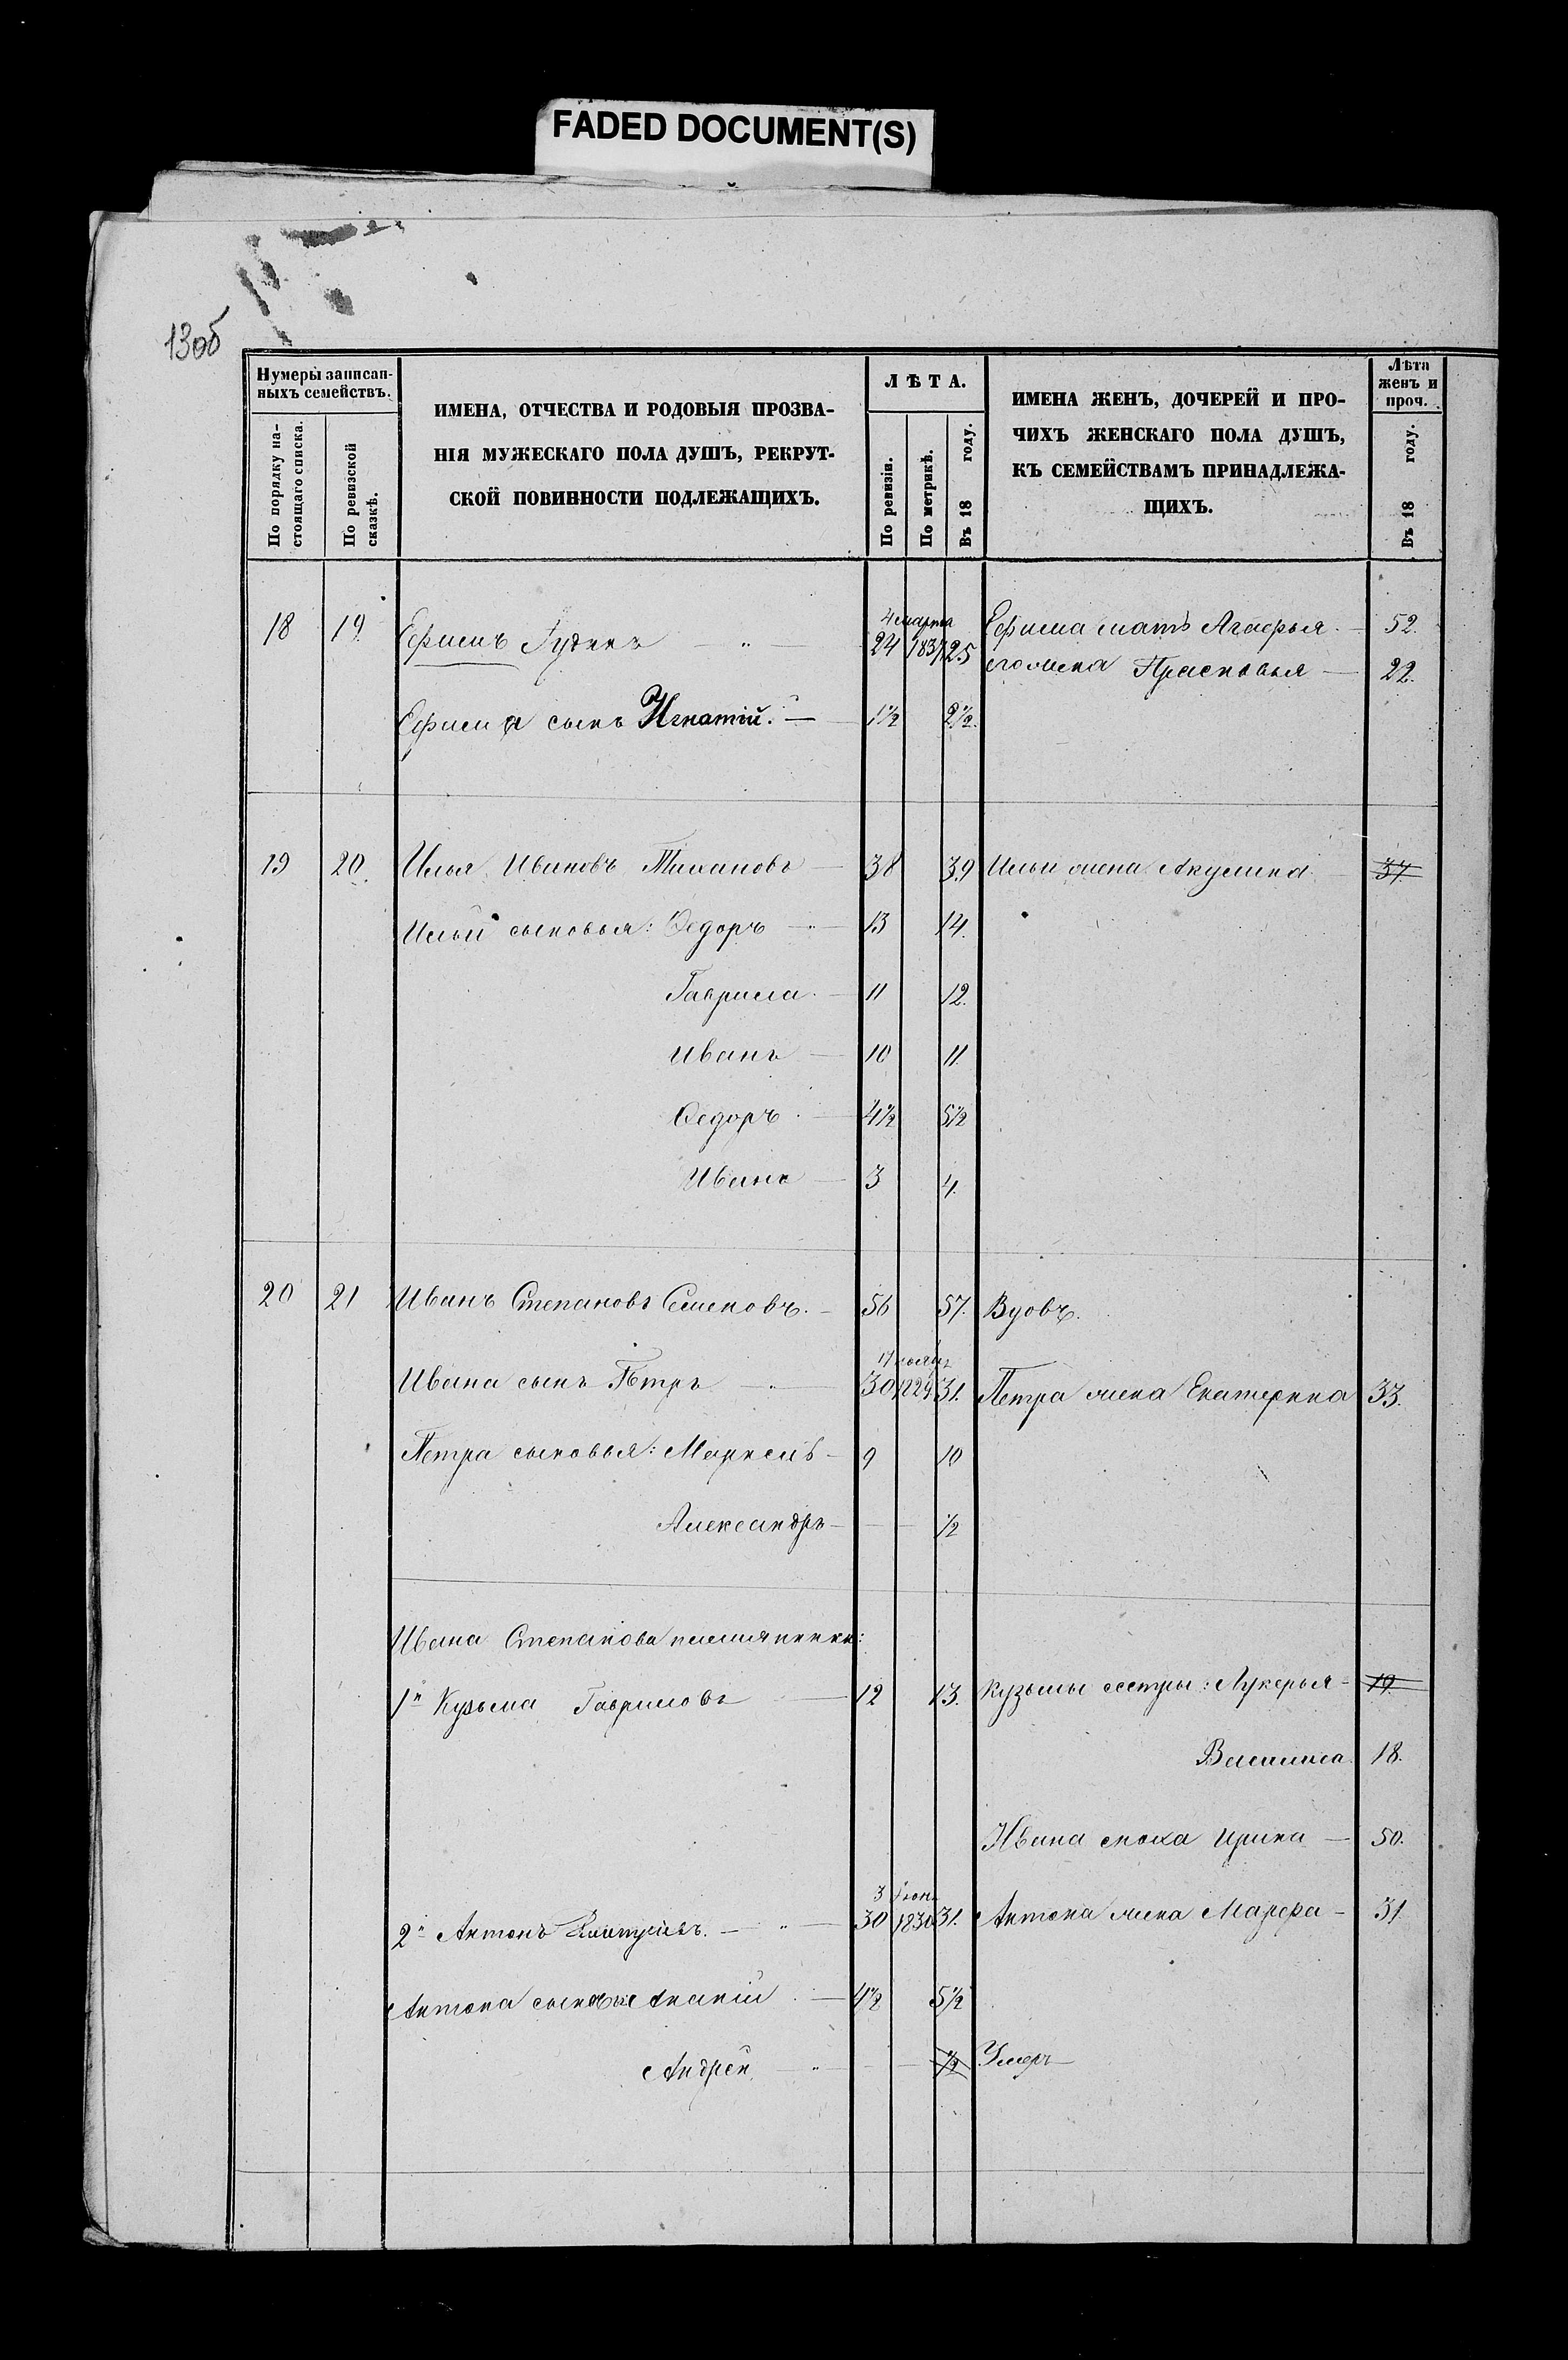 FADED DOCUMENT(S)
13об
Нумеры записан-
ныхъ семействъ.
По порядку на-
стоящаго списка.
По ревизской
сказкѣ.
ИМЕНА, ОТЧЕСТВА И РОДОВЫЯ ПРОЗВА-
НІЯ МУЖЕСКАГО ПОЛА ДУШЪ, РЕКРУТ-
СКОЙ ПОВИННОСТИ ПОДЛЕЖАЩИХЪ.
ЛѢТА.
По ревизіи.
По метрикѣ.
Въ 18 году.
ИМЕНА ЖЕНЪ, ДОЧЕРЕЙ И ПРО-
ЧИХЪ ЖЕНСКАГО ПОЛА ДУШЪ,
КЪ СЕМЕЙСТВАМЪ ПРИНАДЛЕЖА-
ЩИХЪ.
Лѣта
женъ и
проч.
Въ 18 году.
4 марта
18 19 Ефимъ Гудинъ — " — 24 1837 25 Ефима мать Агафья — 52.
его жена Прасковья — 22.
Ефима сынъ Игнатій. — 1½ 2½.
19 20. Илья Ивановъ Тихановъ — 38 39 Ильи жена Акулина — 37
Ильи сыновья: Ѳедоръ — " — 13 14.
Гаврила — 11 12.
Иванъ — 10 11.
Ѳедоръ — 4½ 5½
Иванъ — 3 4.
20 21 Иванъ Степановъ Семеновъ. — 56 57. Вдовъ.
Ивана сынъ Петръ — " — 30 1829 31. Петра жена Екатерина 33.
Петра сыновья: Маркелъ — 9 10
Александръ — — — ½
Ивана Степанова племянники:
1й Кузьма Гавриловъ — 12 13. Кузьмы сестры: Лукерья — 19.
Василиса 18.
Ивана сноха Ирина — 50.
3 Іюня
2й Антонъ — " — 30 1830 31. Антона жена Марфа — 31
Антона сыновья Ананій — 4½ 5½
Андрей — " — — ½ Умеръ —